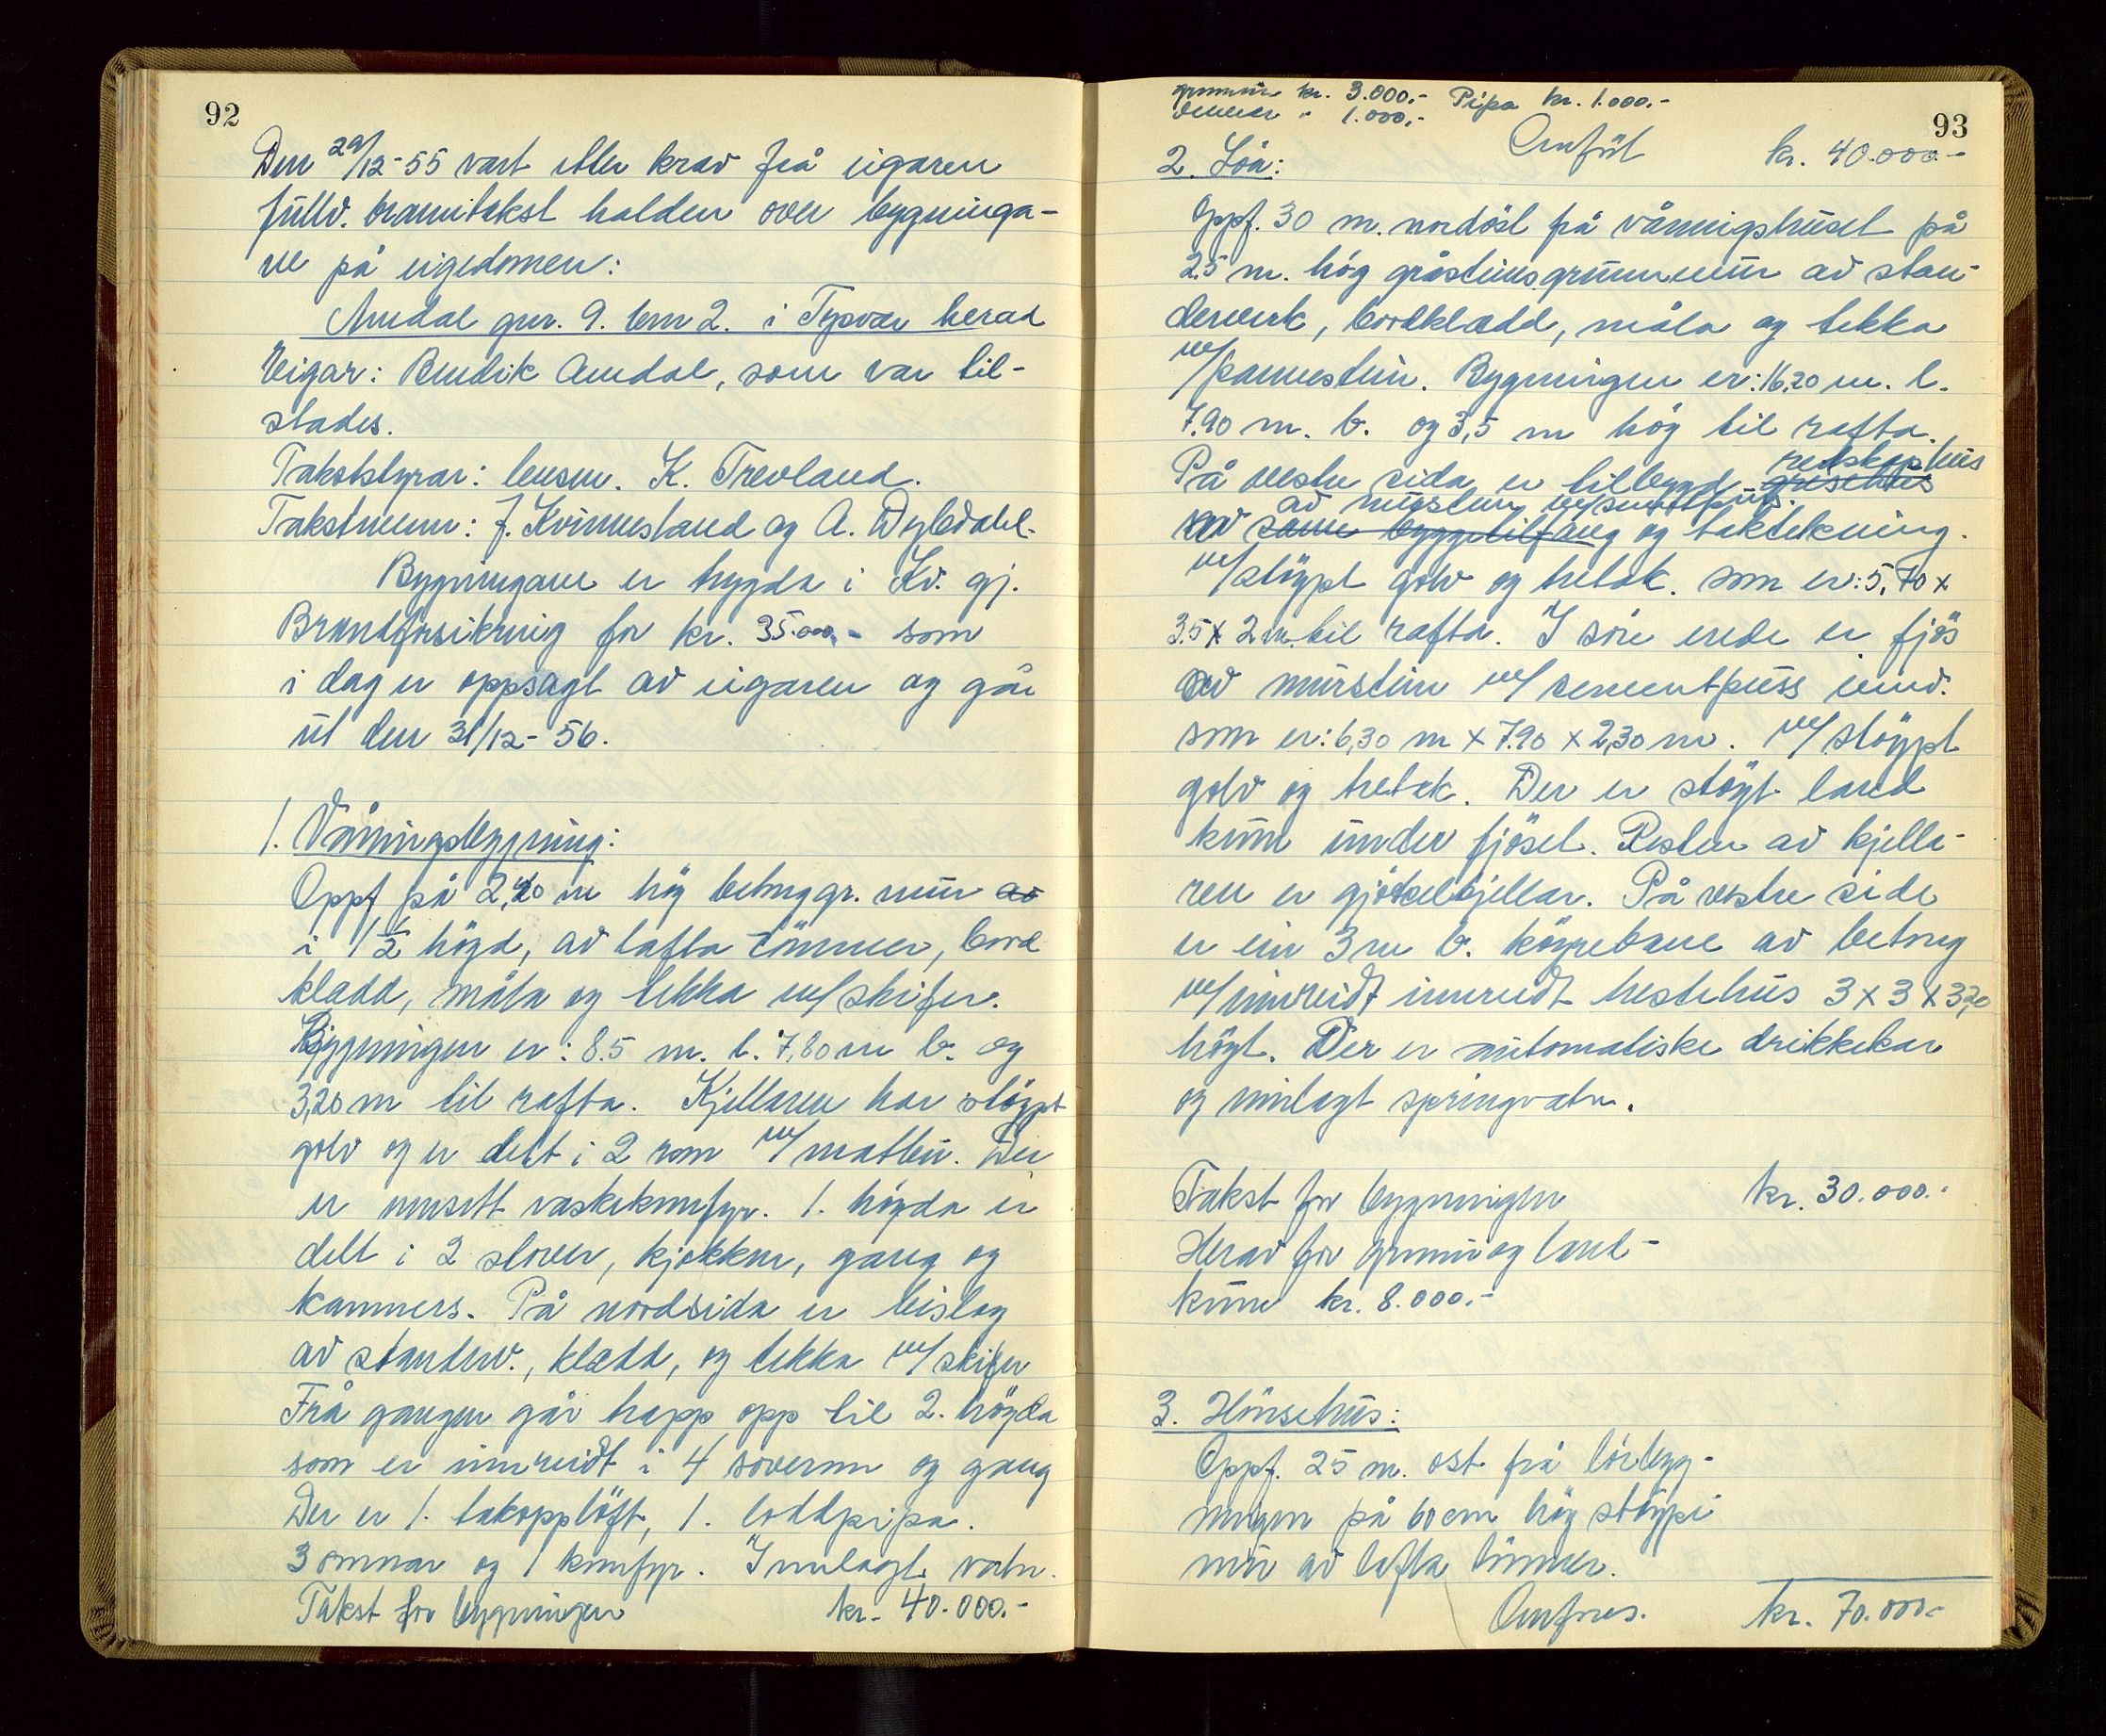 92
Den 29/12-55 vart etter krav frå eigaren
fullv. branntakst halden over bygninga-
ne på eigedomen:
Amdal gnr. 9. bnr 2. i Tysvær herad
Eigar: Bendik Amdal, som var til-
stades.
Takststyrar: lensm. K. Trevland.
Takstmenn: J. Kvinnesland og A. Dybdahl.
Bygningane er trygda i Kv. gj.
Brandforsikring for kr. 35.000,- som
i dag er oppsagt av eigaren og går
ut den 31/12-56.
1. Våningsbygning:
Oppf på 2,40 m hög betonggr. mur av
i 1 1/2 högd, av lafta tömmer, bord
kladd, måla og tekka m/skifer.
Bygningen er: 8.5 m. l. 7,80 m b. og
3,20 m til rafta. Kjellaren har stöypt
golv og er delt i 2 rom m/matbu. Der
er innsett vaskekomfyr. 1. högda er
delt i 2 stover, kjøkken, gang og
kammers. På nordsida er bislag
av standerv., kledd, og tekka m/skifer
Frå gangen går trapp opp til 2. högda
som er innreidt i 4 soverom og gang
Der er 1. takopplöft, 1. loddpipa.
3 omnar og 1 komfyr. Innlagt vatn.
Takst for bygningen kr. 40.000.-
grunnmur kr. 3.000.- Pipa kr. 1.000.-
" 1.000.-
93
Omföt kr. 40.000.-
2. Löa:
Oppf. 30 m. nordöst frå våningshuset på
2.5 m. hög gråsteinsgrunnmur av stan-
derverk, bordkledd, måla og tekka
m/pannestein. Bygningen er: 16,20 m. l.
7.90 m. b. og 3,5 m hög til rafta.
redskaphus
På vestre sida er tilbygd grisehus
av murstein m/sementpuss.
av same byggetilfang og taktekning.
m/stöypt golv og tretak. som er: 5,70 x
3.5 x 2 m. til rafta. I söre ende er fjös
av murstein m/sementpuss innv.
som er: 6,30 m x 7.90 x 2,30 m. m/stöypt
golv og tretak. Der er stöypt land
kum under fjöset. Resten av kjella-
ren er gjödselkjellar. På vestre side
er ein 3 m b. köyrebane av betong
m/innreidt innreidt hestehus 3 x 3 x 3,20
högt. Der er automatiske drikkekar
og innlagt springvatn.
Takst for bygningen kr. 30.000.-
Herav for grunnm og land-
kum kr. 8.000.-
3. Hönsehus:
Oppf. 25 m. ost frå löebyg-
ningen på 60 cm hög stöypt
mur av lafta tömmer.
Omföres. kr. 70.000.-